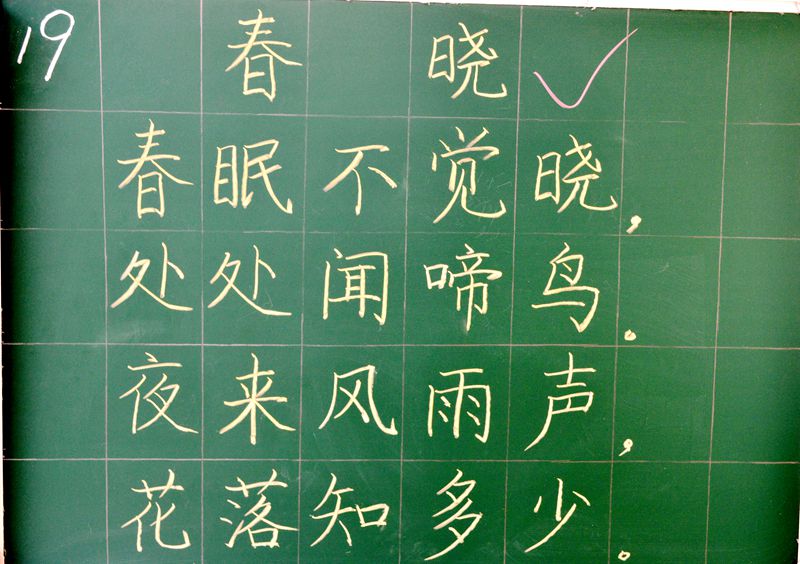 19 春 晓
春眠不觉晓，
处处闻啼鸟。
夜来风雨声，
花落知多少。